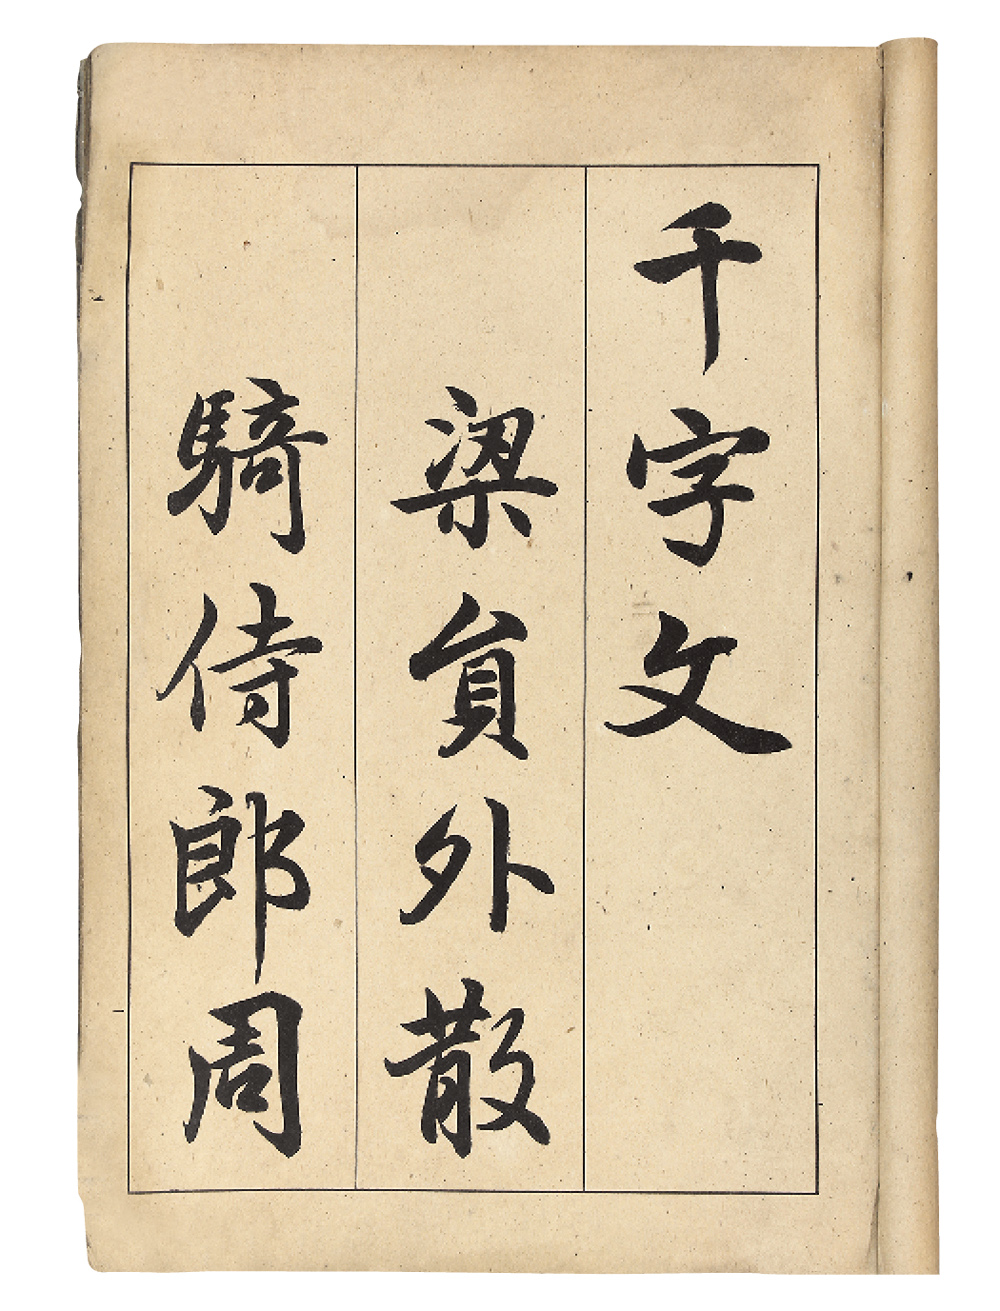 千字文
梁員外散
騎侍郎周